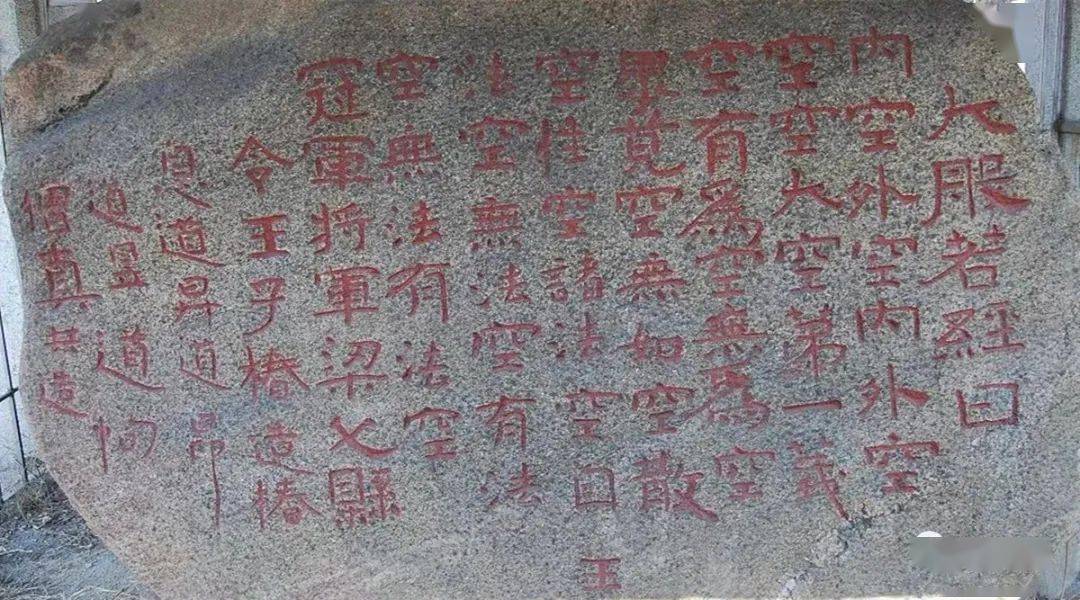 大般若經曰
内空外空内外空
空空大空第一義
空有為空無為空
畢竟空無如空散
空性空諸法空
王
法空無法空有法
空無法有法空
冠軍将軍梁父縣
令王子椿造椿
息道昇道昂
道昱道恂
僧真共造